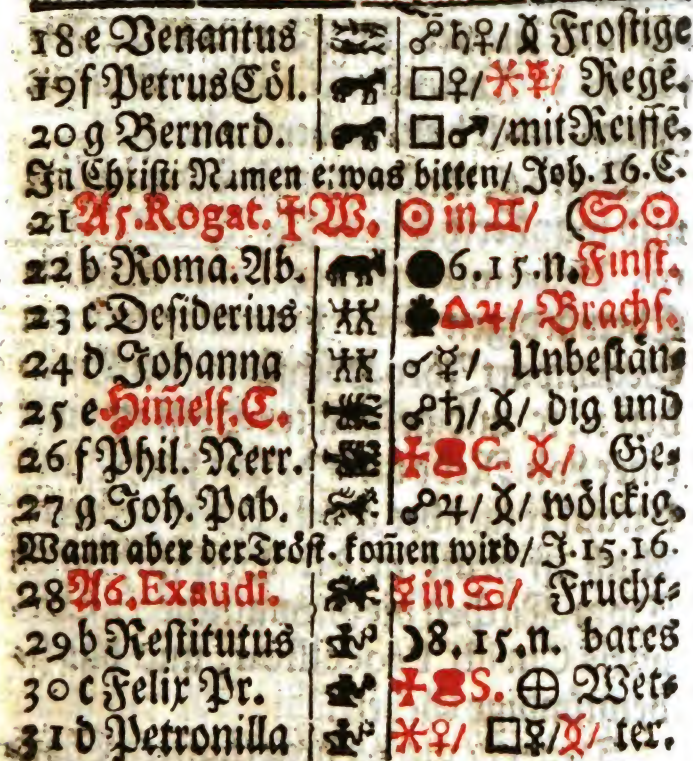 18 e Venantus ☍♄♀/ Frostige
19 f Petrus Cöl. □♀/ ✶☿/ Regē.
20 g Bernard. □♂/mit Reiffē.
In Christi Namen etwas bitten/ Joh. 16. C.
21 A 5. Rogat. † W. ☉ in ♊/ (S.☉.
22 b Roma. Ab. ●6.15.n. Finst.
23 c Desiderius △♃/ Brachs.
24 d Johanna ☌☿/ Unbestän-
25 e Him̄elf. C. ☍♄/ dig und
26 f Phil. Nerr. C. Ge-
27 g Joh. Pab. ☍♃/ wölckig.
Wann aber der Tröst. kom̄en wird/ J. 15.16.
28 A 6. Exaudi. ☿ in ♋/ Frucht-
29 b Restitutus ☽8.15.n. bares
30 c Felix Pr. S. ⊕ Wet-
31 d Petronilla ✶♀/ □☿/ ter.